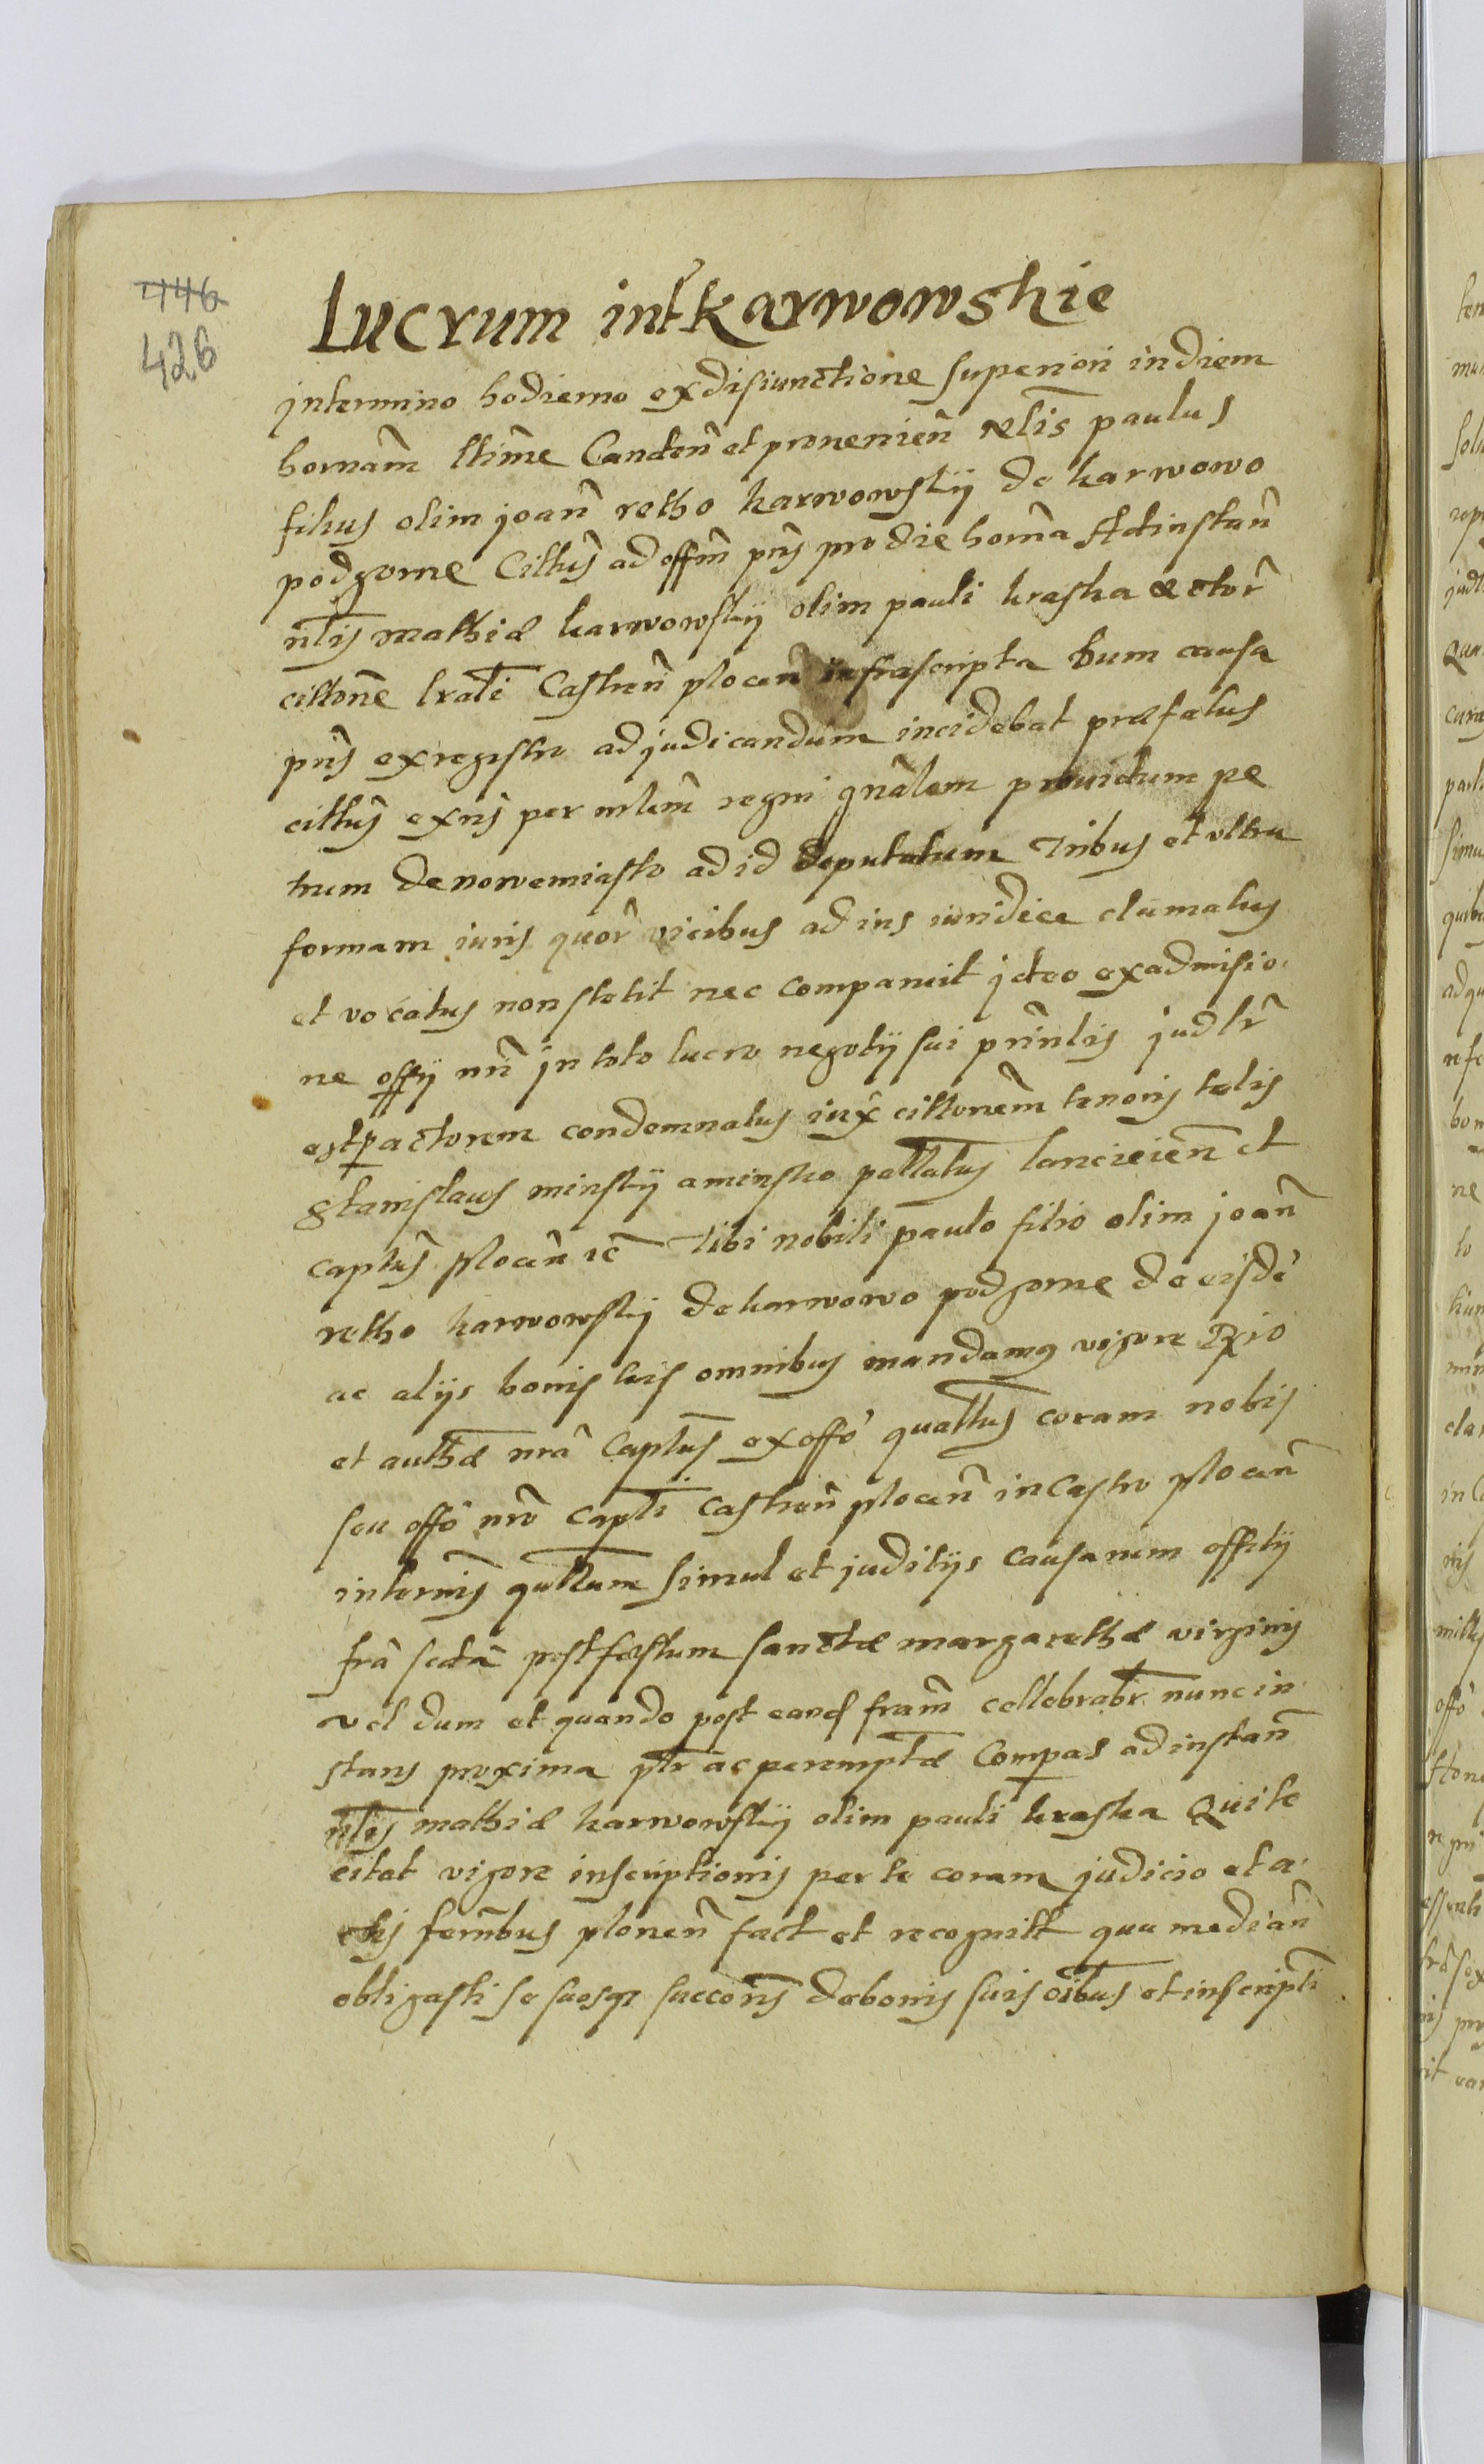 446
426
Lucrum int̃ Karwowskie
jntermino hodierno exdisiunctione superiori indiem
hornam̃ ltim̃e Canden̂ et provenien̂ nẽlis paulus
filius olim joan̂ retho karwowskij de karwowo
podgorne Cittus̃ ad offm̃ pns̃ pro die horna Adinstan̂
nlis̃ mathiæ karwowskij olim pauli kraska actor̂
citton̂e lratĩ Castren̂ plocen̂ infrascripta dum causa
pns̃ exregistro adjudicandum incidebat præfatus
cittus̃ exns̃ per mlem̃ regni gnãlem providum pe
trum denowemiasto ad id deputatum tribus et ultra
formam iuris quor̂ vicibus ad ius iuridice clamatus
et vocatus non stetit nec comparuit jdeo exadmisio
ne offij nri jn toto lucro negotij sui prin̂lis judtr̂
estp actorem condemnatus iux̂ cittonem̃ tenoris talis
Stanislaus minskij aminsko pallatus̃ lancicien̂ et
captus̃ plocen̂ ec̃ Tibi nobili paulo filio olim joan̂
retho karwowskij dekarwowo podgorne de eisdẽ
ac alijs bonis tuis omnibus mandamus vigore Rgio
et autthæ nrã Captus̃ exoffo quattus̃ coram nobis
seu offo nro Captĩ castren̂ plocen̂ in Castro plocen̂
intermis̃ quttum simul et juditijs causarum offitij
frâ secda post festum sanctæ margarethæ virginis
vel dum et quando post eand fram̃ cellebrabr̃ nunc in
stans proxima ptr̃ ac peremptæ Compas adinstan̂
nlis̃ mathiæ karwowskij olim pauli kraska Qui te
citat vigore inscriptionis per te coram judicio et a
ctis femb̃us plonen̂ fact et recognitt qua median̂
obligasti se suosq succores̃ debonis suis oĩbus et inscriptĩ